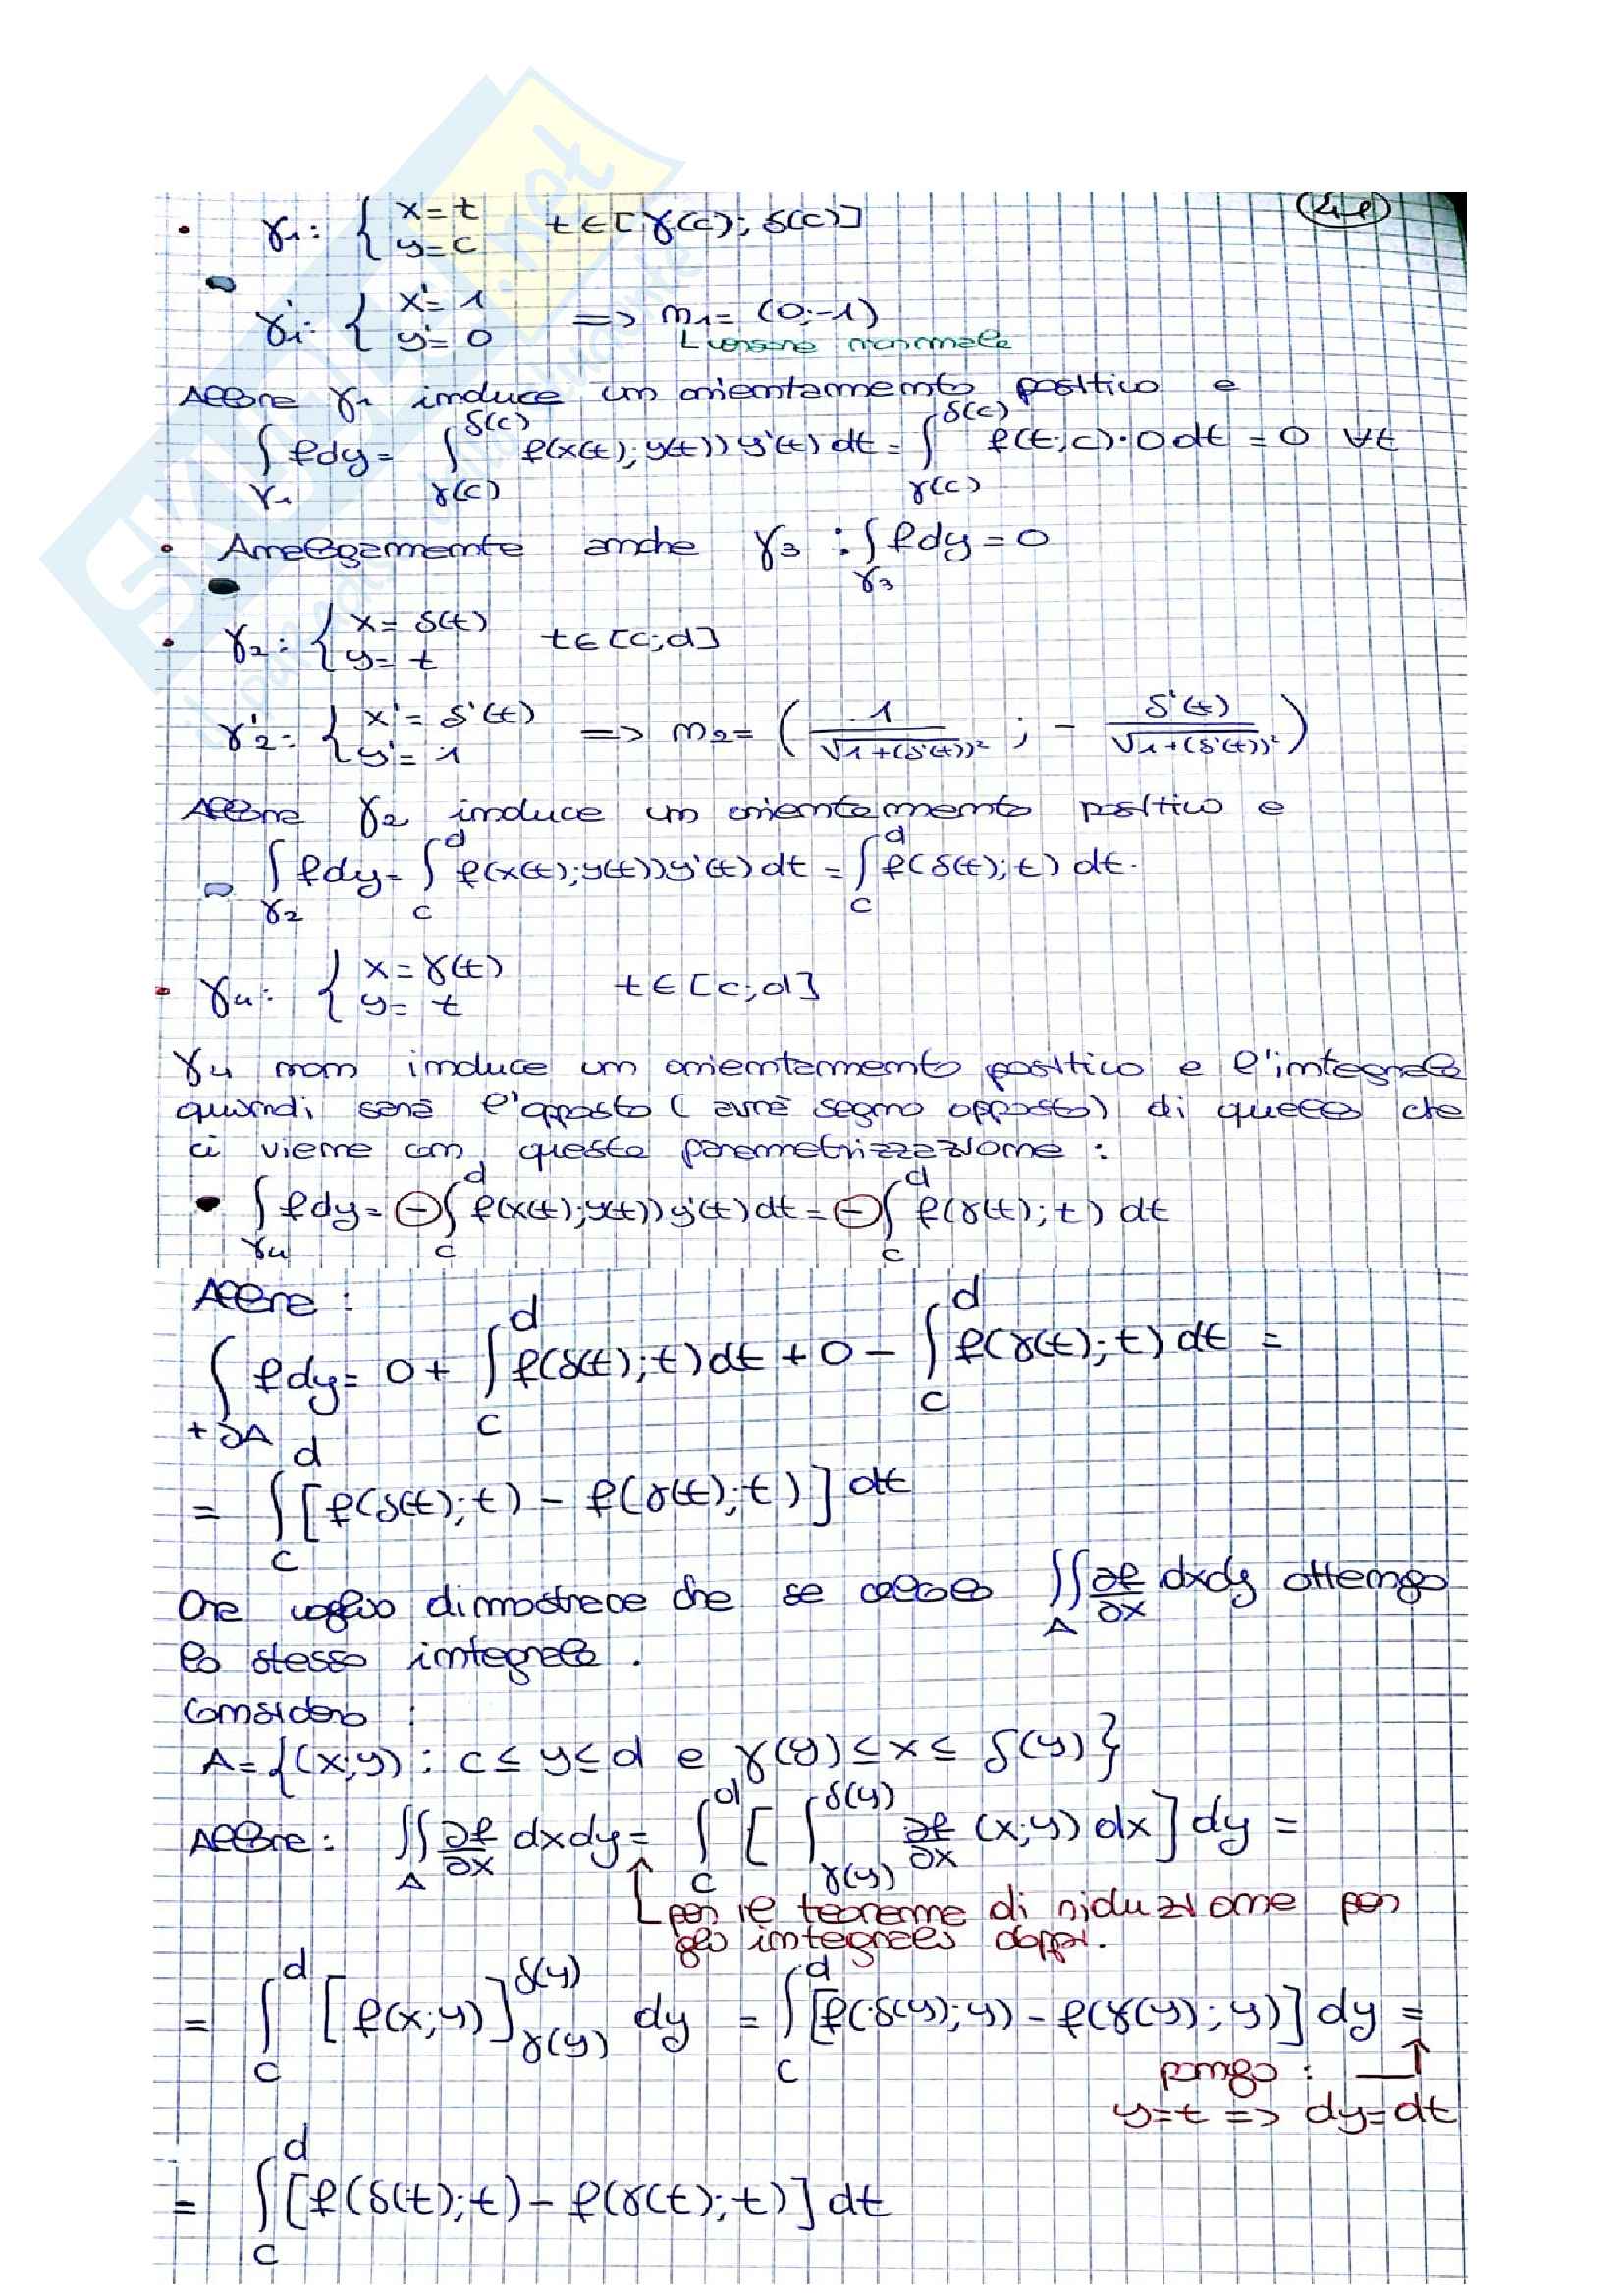 • γ₁: { x = t    t∈[γ(c); δ(c)]
y = c
γ₁': { x' = 1    => n₁ = (0; -1)
y' = 0    versore normale
Allora γ₁ induce un orientamento positivo e
∫_γ₁ f dy = ∫_γ(c)^δ(c) f(x(t); y(t)) y'(t) dt = ∫_γ(c)^δ(c) f(t; c)·0 dt = 0 ∀t
• Analogamente anche γ₃ : ∫_γ₃ f dy = 0
• γ₂: { x = δ(t)    t∈[c; d]
y = t
γ₂': { x' = δ'(t)    => n₂ = ( 1/√1+(δ'(t))² ; - δ'(t)/√1+(δ'(t))² )
y' = 1
Allora γ₂ induce un orientamento positivo e
∫_γ₂ f dy = ∫_c^d f(x(t); y(t)) y'(t) dt = ∫_c^d f(δ(t); t) dt.
• γ₄: { x = γ(t)    t∈[c; d]
y = t
γ₄ non induce un orientamento positivo e l'integrale
quindi sarà l'opposto (avrà segno opposto) di quello che
ci viene con questa parametrizzazione :
• ∫_γ₄ f dy = ⊖∫_c^d f(x(t); y(t)) y'(t) dt = ⊖∫_c^d f(γ(t); t) dt
Allora :
∫_+∂A f dy = 0 + ∫_c^d f(δ(t); t) dt + 0 - ∫_c^d f(γ(t); t) dt =
= ∫_c^d [f(δ(t); t) - f(γ(t); t)] dt
Ora voglio dimostrare che se calcolo ∬_A ∂f/∂x dxdy ottengo
lo stesso integrale .
Considero :
A = {(x; y) : c ≤ y ≤ d e γ(y) ≤ x ≤ δ(y)}
Allora : ∬_A ∂f/∂x dxdy = ∫_c^d [ ∫_γ(y)^δ(y) ∂f/∂x (x; y) dx ] dy =
per il teorema di riduzione per
gli integrali doppi.
= ∫_c^d [f(x; y)]_γ(y)^δ(y) dy = ∫_c^d [f(δ(y); y) - f(γ(y); y)] dy =
pongo :
y = t => dy = dt
= ∫_c^d [f(δ(t); t) - f(γ(t); t)] dt